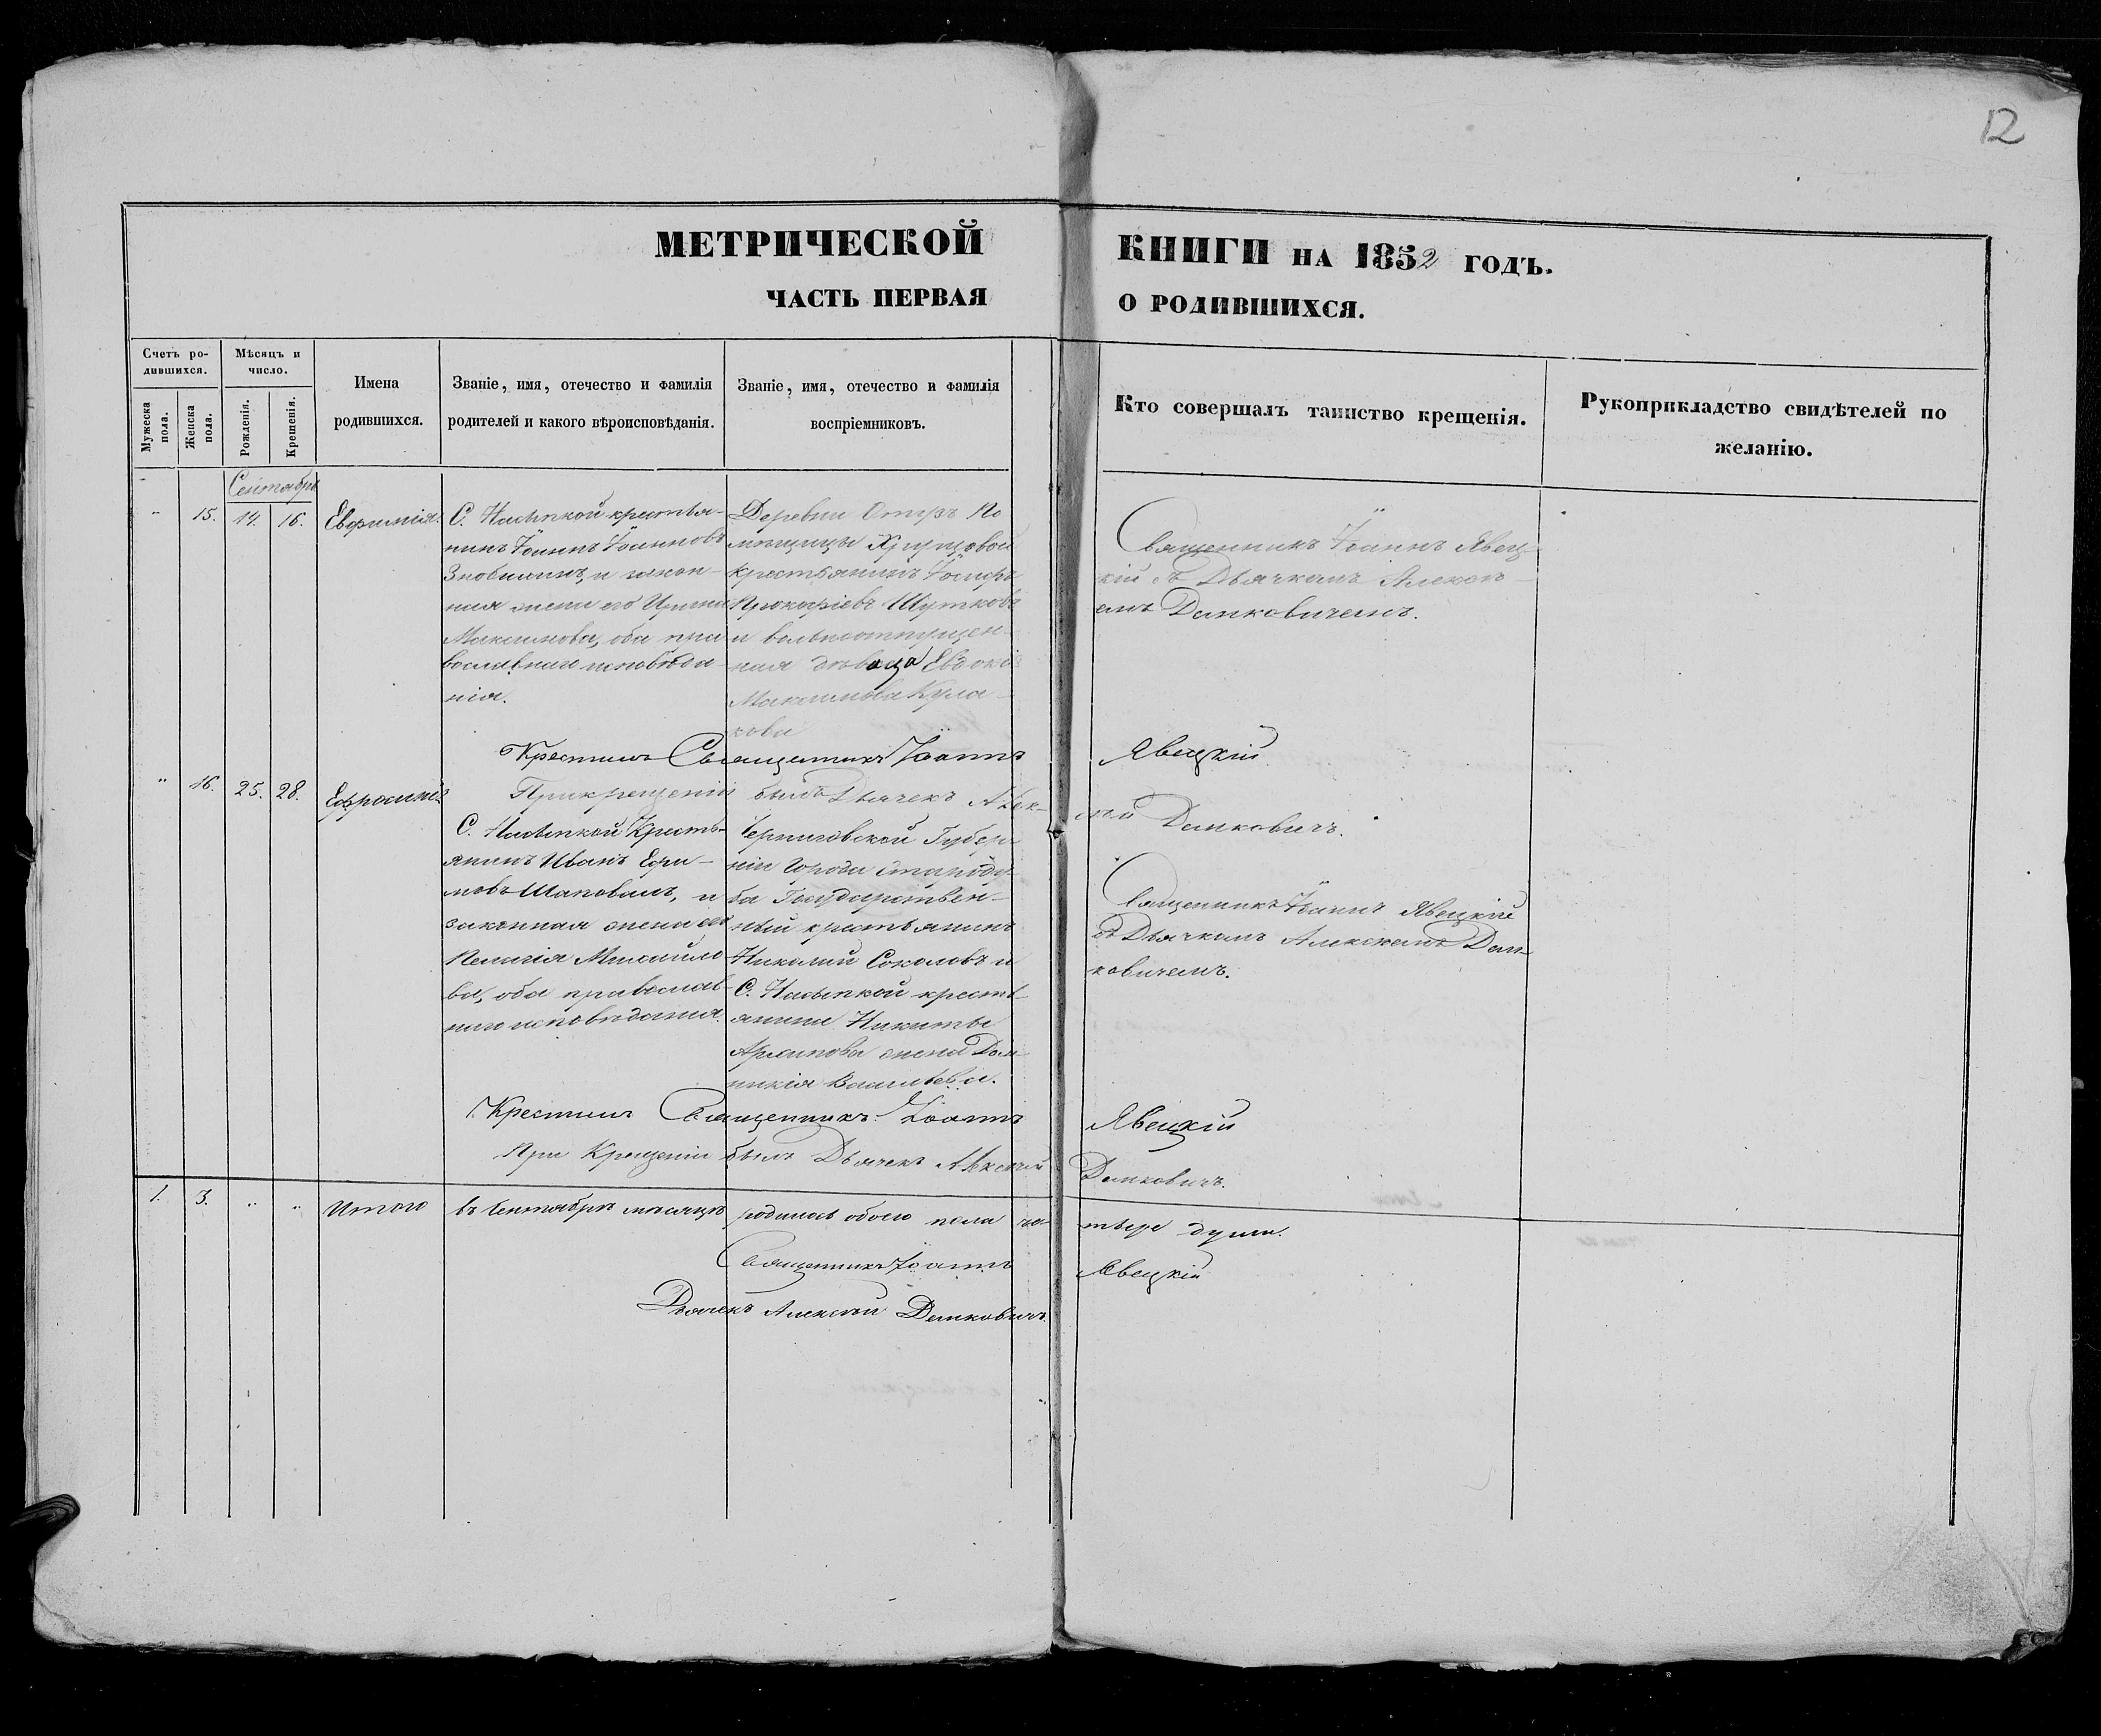 12
МЕТРИЧЕСКОЙ КНИГИ НА 1852 ГОДЪ.
ЧАСТЬ ПЕРВАЯ О РОДИВШИХСЯ.
Счетъ ро-
дившихся.
Мужеска пола.
Женска пола.
Мѣсяцъ и
число.
Рожденія.
Крещенія.
Имена
родившихся.
Званіе, имя, отечество и фамилія
родителей и какого вѣроисповѣданія.
Званіе, имя, отечество и фамилія
воспріемниковъ.
Кто совершалъ таинство крещенія.
Рукоприкладство свидѣтелей по
желанію.
Сентябрь
" 15. 14. 16. Евфимія.
С. Насыпкой крестья-
нинъ Іоаннъ Іоанновъ
и закон-
ная жена его Ирина
Максимова, оба пра
вославнаго исповѣда
нія.
Деревни По
мѣщицы
крестьянинъ Іосифъ
Прокофіевъ Шутковъ
и вольноотпущен-
ная дѣвица Евдокія
Максимова Кула-
кова
Священникъ Іоаннъ Явец-
кій съ Дьячкомъ Алексѣ-
емъ Данковичемъ.
Крестилъ Священникъ Іоаннъ Явецкій
При крещеніи былъ Дьячекъ Алек-сѣй Данковичъ.
" 16. 25. 28. Ефросинія
С. Насыпкой Кресть-
янинъ Иванъ Ефи-
мовъ Шаповалъ, и
законная жена его
Пелагія Михайло
ва, оба православ-
наго исповѣданія.
Черниговской Губер
ніи Города Староду-
ба Государствен-
ный крестьянинъ
Николай Соколовъ и
С. Насыпкой кресть-
янина Никиты
жена Дом-
никія Васильева.
Священникъ Іоаннъ Явецкій
съ Дьячкомъ Алексѣемъ Дан-
ковичемъ.
Крестилъ Священникъ Іоаннъ Явецкій
При Крещеніи былъ Дьячекъ Алексѣй Данковичъ.
1. 3. " " Итого въ Сентябрѣ мѣсяцѣ родилось обоего пола че-тыре души.
Священникъ Іоаннъ Явецкій
Дьячекъ Алексѣй Данковичъ.